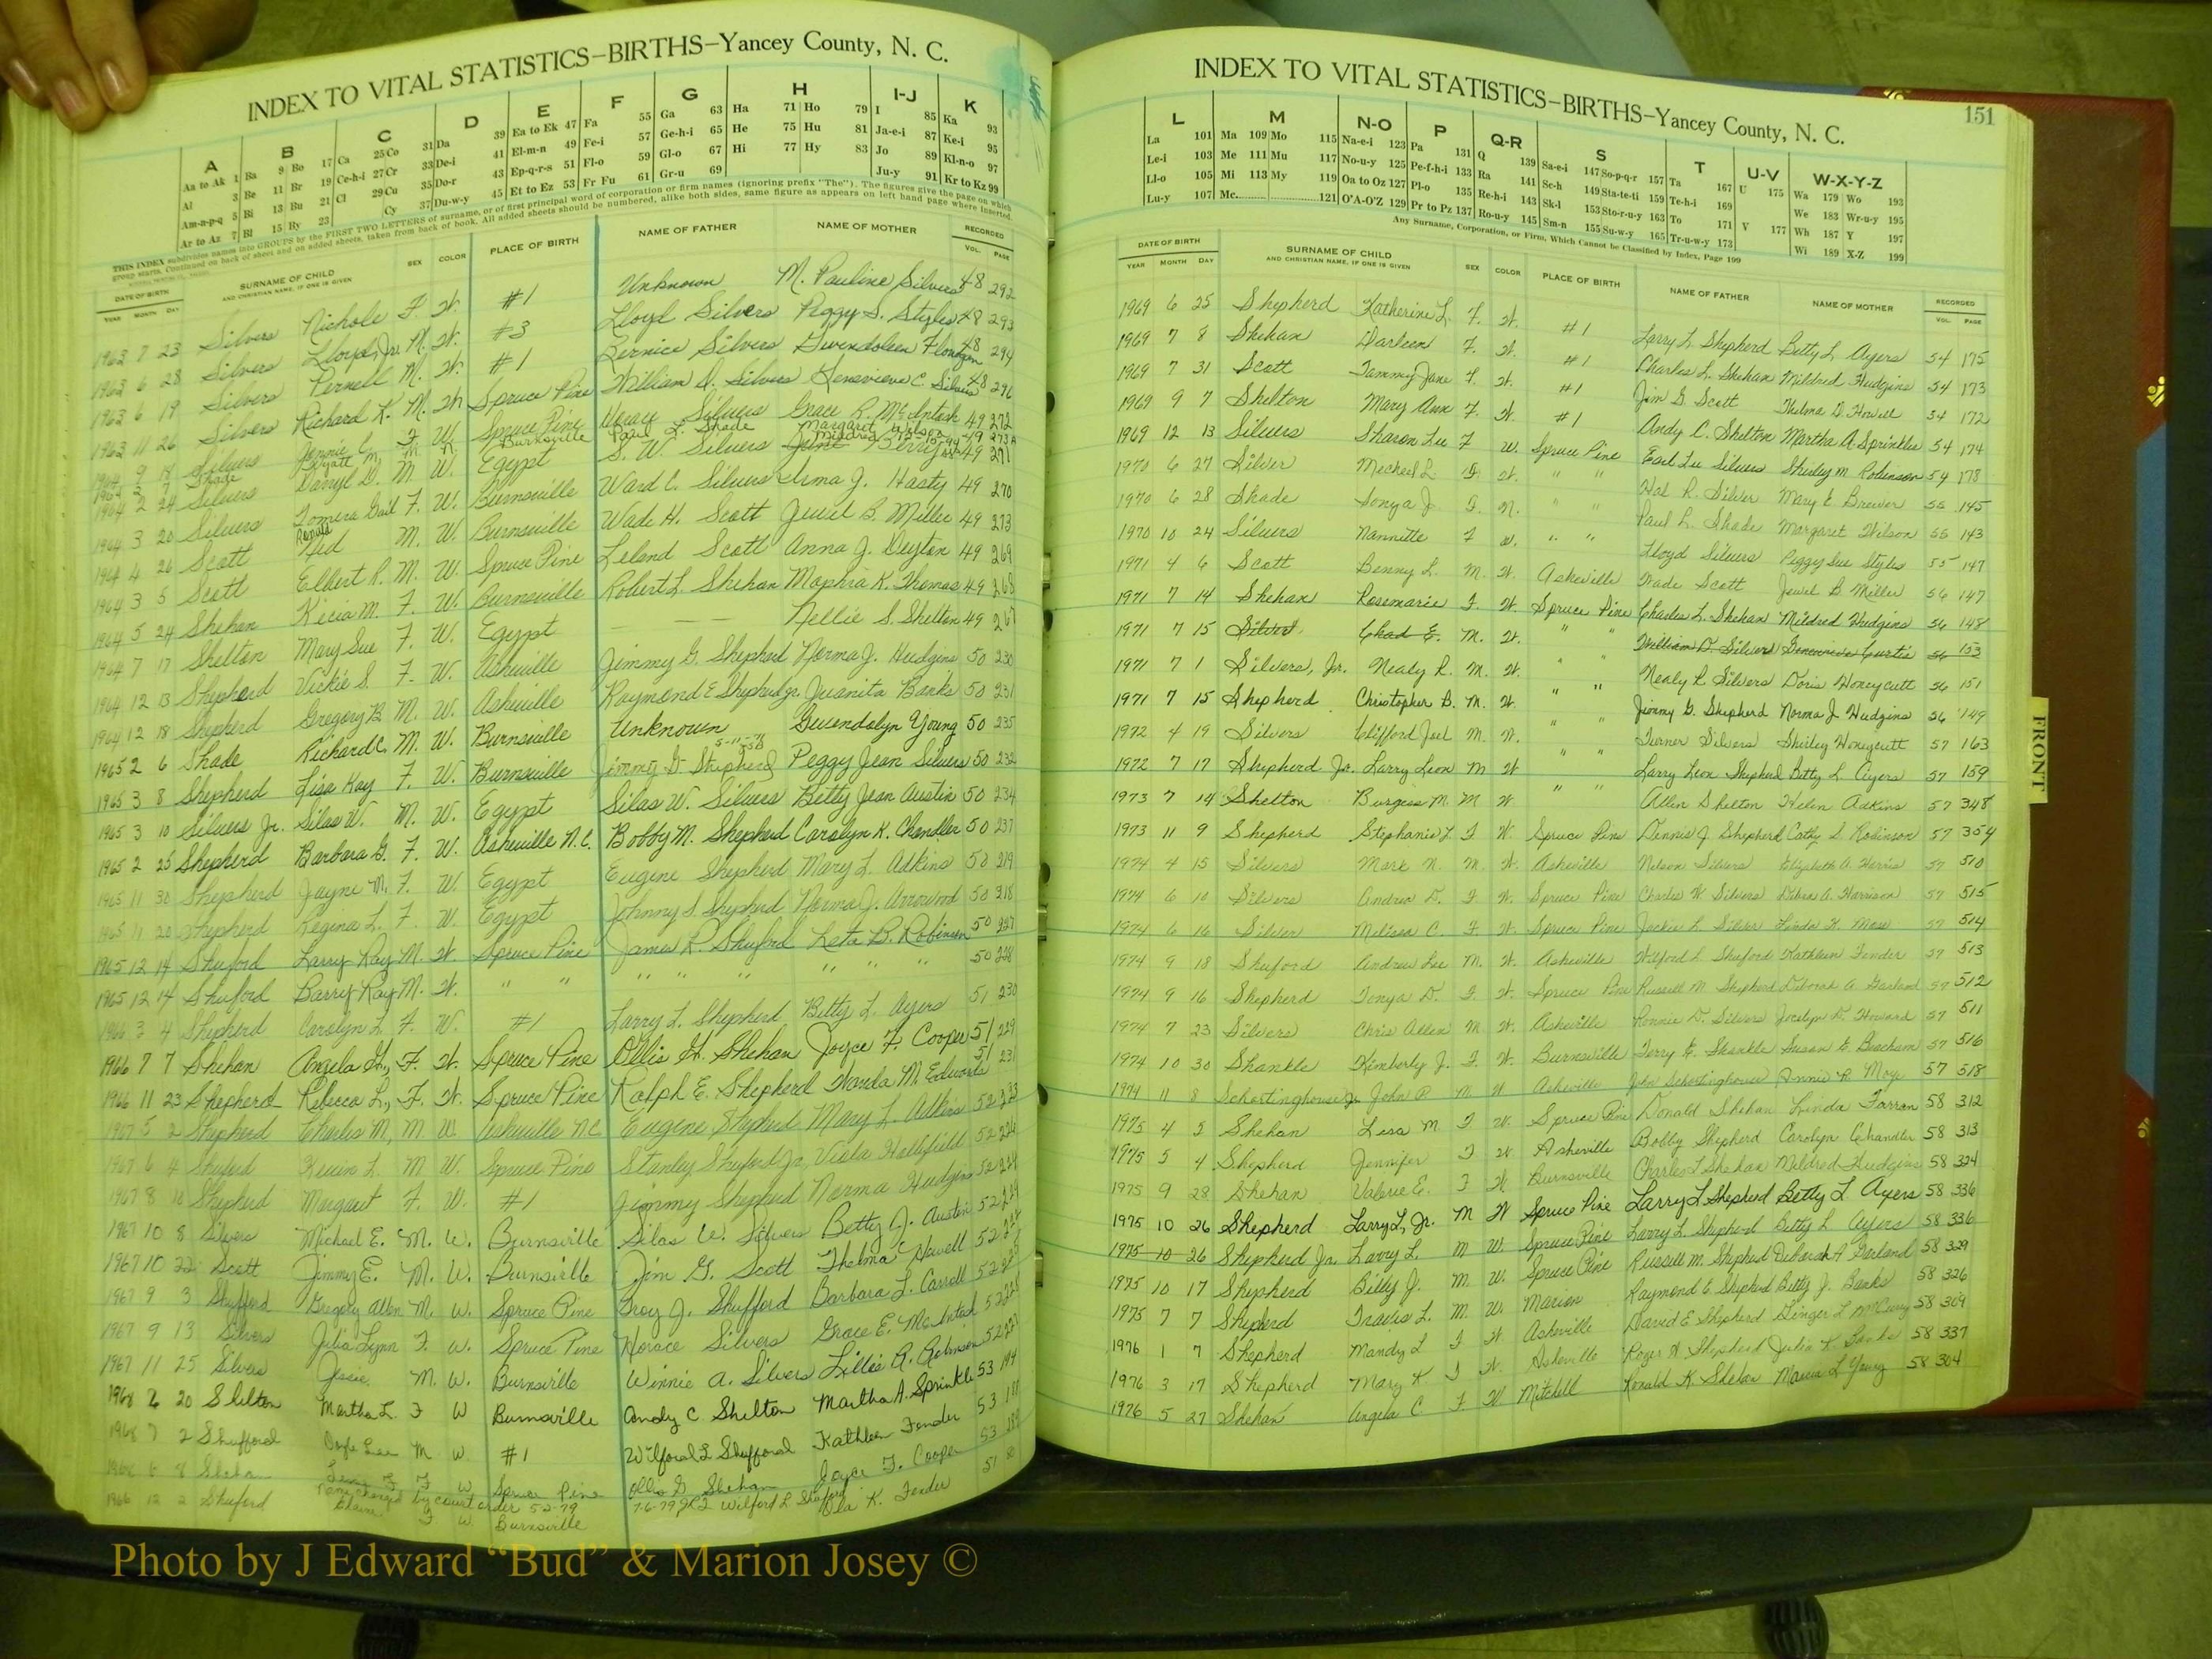 INDEX TO VITAL STATISTICS–BIRTHS–Yancey County, N. C.
A B C D E F G H I-J K
Aa to Ak 1 Ba 9 Bo 17 Ca 25 Co 31 Da 39 Ea to Ek 47 Fa 55 Ga 63 Ha 71 Ho 79 I 85 Ka 93
Al 3 Be 11 Br 19 Ce-h-i 27 Cr 33 De-i 41 El-m-n 49 Fe-i 57 Ge-h-i 65 He 75 Hu 81 Ja-e-i 87 Ke-i 95
Am-a-p-q 5 Bi 13 Bu 21 Cl 29 Cu 35 Do-r 43 Ep-q-r-s 51 Fl-o 59 Gl-o 67 Hi 77 Hy 83 Jo 89 Kl-n-o 97
Ar to Az 7 Bl 15 By 23 Cy 37 Du-w-y 45 Et to Ez 53 Fr Fu 61 Gr-u 69 Ju-y 91 Kr to Kz 99
THIS INDEX subdivides names into GROUPS by the FIRST TWO LETTERS of surname, or of first principal word of corporation or firm names (ignoring prefix "The"). The figures give the page on which
group starts. Continued on back of sheet and on added sheets, taken from back of book. All added sheets should be numbered, alike both sides, same figure as appears on left hand page where inserted.
DATE OF BIRTH SURNAME OF CHILD SEX COLOR PLACE OF BIRTH NAME OF FATHER NAME OF MOTHER RECORDED
YEAR MONTH DAY AND CHRISTIAN NAME, IF ONE IS GIVEN VOL. PAGE
1963 7 23 Silvers Nichole F. W. #1 Unknown M. Pauline Silvers 48 292
1963 6 28 Silvers Lloyd, Jr. M. W. #3 Lloyd Silvers Peggy S. Styles 48 293
1963 6 19 Silvers Pernell M. W. #1 Bernice Silvers Gwendoleen 48 294
1963 11 26 Silvers Richard K. M. W. Spruce Pine William D. Silvers Genevieve C. Silvers 48 296
Silvers Jennie C. F W Spruce Pine Horace Silvers Grace R. McIntosh 49 272
1964 Shade Wyatt M. M Burnsville Paul L. Shade Margaret Wilson 49 273A
1964 2 24 Silvers Darryl D. M. W. Egypt S. W. Silvers Mildred Berry 49 271
1964 3 20 Silvers Tomera Gail F. W. Burnsville Ward C. Silvers Irma J. Hasty 49 270
1964 4 26 Scott Ronald Ned M. W. Burnsville Wade H. Scott Jewel B. Miller 49 273
1964 3 5 Scott Elbert R. M. W. Spruce Pine Leland Scott Anna J. Deyton 49 269
1964 5 24 Shehan Kicia M. F. W. Burnsville Robert L Shehan Maphra K. Thomas 49 268
1964 7 17 Shelton Mary Sue F. W. Egypt Nellie S. Shelton 49 267
1964 12 13 Shepherd Vickie S. F. W. Asheville Jimmy G. Shepherd Norma J. Hudgins 50 230
1964 12 18 Shepherd Gregory B M. W. Asheville Raymond E Shepherd Jr. Juanita Banks 50 231
1965 2 6 Shade Richard C. M. W. Burnsville Unknown Gwendolyn Young 50 235
1965 3 8 Shepherd Lisa Kay F. W. Burnsville Jimmy G Shepherd Peggy Jean Silvers 50 232
1965 3 10 Silvers Jr. Silas W. M. W. Egypt Silas W. Silvers Betty Jean Austin 50 234
1965 2 25 Shepherd Barbara G. F. W. Asheville N.C. Bobby M. Shepherd Carolyn K. Chandler 50 237
1965 11 30 Shepherd Jayne M. F. W. Egypt Eugene Shepherd Mary L. Adkins 50 219
1965 11 20 Shepherd Regena L. F. W. Egypt Johnny S. Shepherd Norma J. Arrowood 50 218
1965 12 14 Shuford Larry Ray M. W. Spruce Pine James R. Shuford Leta B. Robinson 50 227
1965 12 14 Shuford Barry Ray M. W. " " " " " " " " 50 228
1966 3 4 Shepherd Carolyn L. F. W. #1 Larry L. Shepherd Betty L. Ayers 51 230
1966 7 7 Shehan Angela G., F. W. Spruce Pine Ollis G. Shehan Joyce F. Cooper 51 229
1966 11 23 Shepherd Rebecca L., F. W. Spruce Pine Ralph E. Shepherd Wanda M. Edwards 51 231
1967 5 2 Shepherd Charles M, M W. Asheville N.C Eugene Shepherd Mary L. Adkins 52 223
1967 6 4 Shuford Kevin L. M W. Spruce Pine Stanley Shuford Jr. Viola Hollifield 52
1967 8 Shepherd Margaret F. W. #1 Jimmy Shepherd Norma Hudgins 52
1967 10 8 Silvers Michael E. M. W. Burnsville Silas W. Silvers Betty J. Austin 52
1967 10 22 Scott Jimmy E. M. W. Burnsville Jim G. Scott Thelma Howell 52
1967 9 3 Shufford Gregory Allen M. W. Spruce Pine Troy J. Shufford Barbara L. Carroll 52
1967 9 13 Silvers Julia Lynn F. W. Spruce Pine Horace Silvers Grace E. McIntosh 52
1967 11 25 Silvers Jessie M. W. Burnsville Winnie A. Silvers Lillie R. Robinson 53 194
1968 6 20 Shelton Martha L. F W Burnsville Andy C Shelton Martha A. Sprinkle 53
1968 7 2 Shufford Doyle Lee M W #1 Wilford L Shufford Kathleen Fender 53
1968 Shehan F W Spruce Pine Ollis G Shehan Joyce F. Cooper 53
Name changed by court order 5-2-79 7-6-79
1966 12 2 Shuford Elaine F W Burnsville Wilford L Shuford Ola K. Fender 51
INDEX TO VITAL STATISTICS–BIRTHS–Yancey County, N. C. 151
L M N-O P Q-R S T U-V W-X-Y-Z
La 101 Ma 109 Mo 115 Na-e-i 123 Pa 131 Q 139 Sa-e-i 147 So-p-q-r 157 Ta 167 U 175 Wa 179 Wo 193
Le-i 103 Me 111 Mu 117 No-u-y 125 Pe-f-h-i 133 Ra 141 Sc-h 149 Sta-te-ti 159 Te-h-i 169 We 183 Wr-u-y 195
Ll-o 105 Mi 113 My 119 Oa to Oz 127 Pl-o 135 Re-h-i 143 Sk-l 153 Sto-r-u-y 163 To 171 V 177 Wh 187 Y 197
Lu-y 107 Mc 121 O'A-O'Z 129 Pr to Pz 137 Ro-u-y 145 Sm-n 155 Su-w-y 165 Tr-u-w-y 173 Wi 189 X-Z 199
Any Surname, Corporation, or Firm, Which Cannot be Classified by Index, Page 199
DATE OF BIRTH SURNAME OF CHILD SEX COLOR PLACE OF BIRTH NAME OF FATHER NAME OF MOTHER RECORDED
YEAR MONTH DAY AND CHRISTIAN NAME, IF ONE IS GIVEN VOL. PAGE
1969 6 25 Shepherd Katherine L. F. W. #1 Larry L. Shepherd Betty L. Ayers 54 175
1969 7 8 Shehan Darleen F. W. #1 Charles L. Shehan Mildred Hudgins 54 173
1969 7 31 Scott Tammy Jane F. W. #1 Jim G. Scott Thelma D. Howell 54 172
1969 9 7 Shelton Mary Ann F. W. #1 Andy C. Shelton Martha A. Sprinkle 54 174
1969 12 13 Silvers Sharon Lee F W. Spruce Pine Earl Lee Silvers Shirley M Robinson 54 178
1970 6 27 Silver Mecheal L F. W. " " Hal R. Silver Mary E Brewer 55 145
1970 6 28 Shade Sonya J F. N. " " Paul L. Shade Margaret Wilson 55 143
1970 10 24 Silvers Nannitte F W. " " Lloyd Silvers Peggy Sue Styles 55 147
1971 4 6 Scott Benny L. M. W. Asheville Wade Scott Jewel B Miller 56 147
1971 7 14 Shehan Rosemarie F. W. Spruce Pine Charles L. Shehan Mildred Hudgins 56 148
1971 7 15 Silvers Chad E. M. W. " " William D. Silvers Genevieve Curtis 56 153
1971 7 1 Silvers, Jr. Nealy R. M. W. " " Nealy R Silvers Doris Honeycutt 56 151
1971 7 15 Shepherd Christopher B. M. W. " " Jimmy G. Shepherd Norma J Hudgins 56 149
1972 4 19 Silvers Clifford Joel M. W. " " Turner Silvers Shirley Honeycutt 57 163
1972 7 17 Shepherd Jr. Larry Leon M W " " Larry Leon Shepherd Betty L. Ayers 57 159
1973 7 14 Shelton Burgess M. M W " " Allen Shelton Helen Adkins 57 348
1973 11 9 Shepherd Stephanie L. F W. Spruce Pine Dennis J. Shepherd Cathy S. Robinson 57 354
1974 4 15 Silvers Mark N. M. W. Asheville Nelson Silvers Elizabeth A. Harris 57 510
1974 6 10 Silvers Andrea D. F W. Spruce Pine Charles W Silvers Debra A. Harrison 57 515
1974 6 16 Silver Melissa C. F. W. Spruce Pine Jackie L Silver Linda K. 57 514
1974 9 18 Shuford Andrew Lee M. W. Asheville Wilford L Shuford Kathleen Fender 57 513
1974 9 16 Shepherd Tonya D. F. W. Spruce Pine Russell M Shepherd Deborah A Garland 57 512
1974 7 23 Silvers Chris Allen M W. Asheville Ronnie D. Silvers Jocelyn D. Howard 57 511
1974 10 30 Shankle Kimberly J. F. W. Burnsville Terry E. Shankle Susan E. Beacham 57 516
1974 11 8 Schortinghouse Jr John P. M W Asheville John Schortinghouse Annie R. 57 518
1975 4 5 Shehan Lisa M F W. Spruce Pine Donald Shehan Linda Farran 58 312
1975 5 4 Shepherd Jennifer F W Asheville Bobby Shepherd Carolyn Chandler 58 313
1975 9 28 Shehan Valerie E. F W. Burnsville Charles L Shehan Mildred Hudgins 58 324
1975 10 26 Shepherd Larry L, Jr. M W Spruce Pine Larry L Shepherd Betty L Ayers 58 336
1975 10 26 Shepherd Jr. Larry L. M W. Spruce Pine Larry L. Shepherd Betty L Ayers 58 336
1975 10 17 Shepherd Billy J. M. W. Spruce Pine Russell M. Shepherd Deborah A Garland 58 329
1975 7 7 Shepherd Travis L. M. W. Marion Raymond E Shepherd Betty J. Banks 58 326
1976 1 7 Shepherd Mandy L F W. Asheville David E Shepherd Ginger L McCurry 58 309
1976 3 17 Shepherd Mary K F W. Asheville Roger Shepherd Julia K Banks 58 337
1976 5 27 Shehan Angela C. F. W. Mitchell Ronald K Shehan Marcia L Young 58 304
FRONT
Photo by J Edward “Bud” & Marion Josey ©